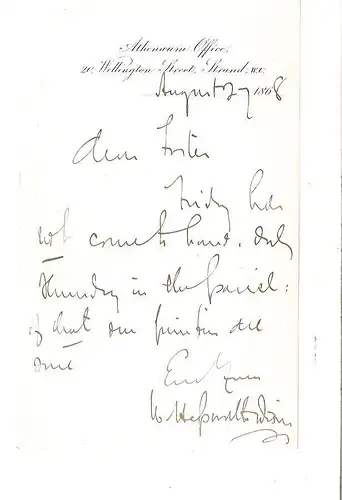 Athenæum Office,
20, Wellington Street, Strand, W.C.
August 27 1868
Dear Foster
Friday has
not come to hand. Only
Thursday in the parcel:
of that our
W. Hepworth Dixon